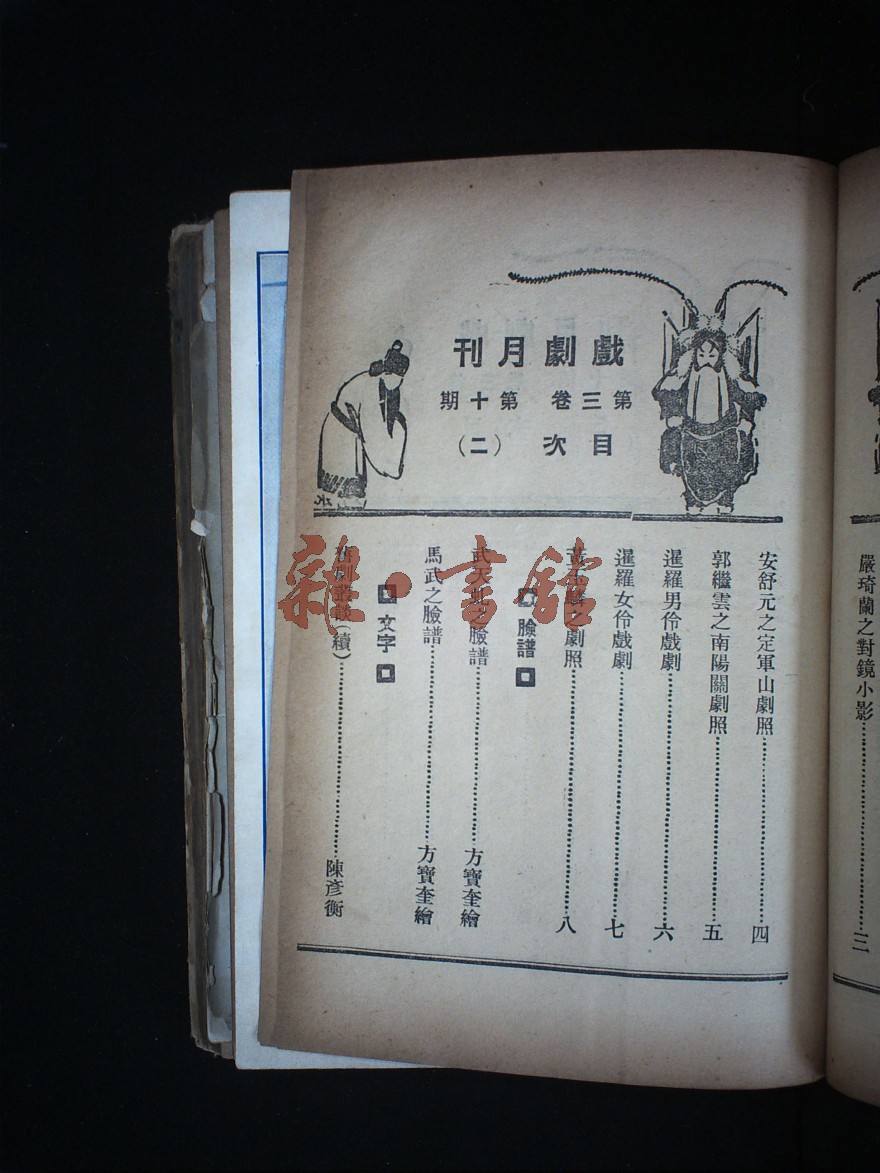 嚴琦蘭之對鏡小影……………三
戲劇月刊
第三卷 第十期
目次(二)
安舒元之定軍山劇照……………四
郭繼雲之南陽關劇照……………五
暹羅男伶戲劇……………六
暹羅女伶戲劇……………七
黃玉麟之劇照……………八
臉譜
武天虬之臉譜……………方寶奎繪
馬武之臉譜……………方寶奎繪
文字
舊劇叢談(續)……………陳彥衡
雜·書館